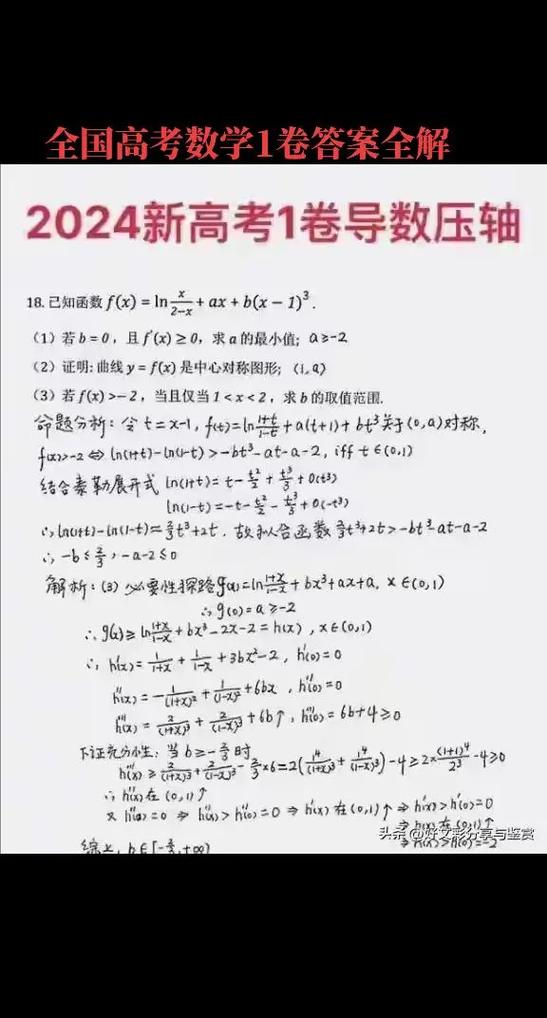 全国高考数学1卷答案全解
2024新高考1卷导数压轴
18.已知函数 f(x) = ln x/(2−x) + ax + b(x − 1)³.
(1) 若 b = 0，且 f′(x) ≥ 0，求 a 的最小值；a≥-2
(2) 证明：曲线 y = f(x) 是中心对称图形；(1,a)
(3) 若 f(x) > −2，当且仅当 1 < x < 2，求 b 的取值范围.
命题分析：令 t=x-1, f(t)=ln (1+t)/(1-t) + a(t+1) + bt³ 关于(0,a)对称,
f(x)>-2 ⇔ ln(1+t)-ln(1-t) > -bt³-at-a-2, iff t∈(0,1)
结合泰勒展开式 ln(1+t)= t - t²/2 + t³/3 + o(t³)
ln(1-t)= -t - t²/2 - t³/3 + o(-t³)
∴ ln(1+t)-ln(1-t)= ⅔t³+2t. 故拟合函数 ⅔t³+2t > -bt³-at-a-2
∴ -b ≤ ⅔, -a-2≤0
解析：(3) 必要性探路 g(x)=ln (1+x)/(1-x) + bx³+ax+a, x∈(0,1)
∴ g(0)=a≥-2
∴ g(x)≥ ln (1+x)/(1-x) + bx³-2x-2 = h(x), x∈(0,1)
∴ h′(x)= 1/(1+x) + 1/(1-x) + 3bx²-2, h′(0)=0
h″(x)= -1/(1+x)² + 1/(1-x)² + 6bx, h″(0)=0
h‴(x)= 2/(1+x)³ + 2/(1-x)³ + 6b↑, h‴(0)=6b+4≥0
下证充分性：当 b≥-⅔ 时
h‴(x) ≥ 2/(1+x)³ + 2/(1-x)³ - ⅔×6 = 2(1⁴/(1+x)³ + 1⁴/(1-x)³) - 4 ≥ 2×(1+1)⁴/2³ - 4 ≥ 0
∴ h″(x)在(0,1)↑
又 h″(0)=0 ⇒ h″(x)>h″(0)=0 ⇒ h′(x)在(0,1)↑ ⇒ h′(x)>h′(0)=0
⇒ h(x)在(0,1)↑
头条 @好文彩分享与鉴赏
⇒ h(x)>h(0)=-2
综上, b∈[-⅔,+∞)